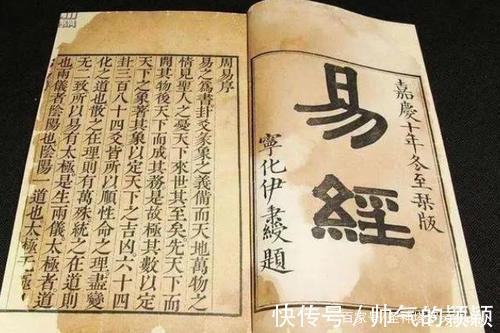 嘉慶十年冬至栞版
易經
寧化伊秉綬題
周易序
易之爲書卦爻彖象之義備而天地萬物之
情見聖人之憂天下來世其至矣先天下而
開其物後天下而成其務是故極其數以定
天下之象著其象以定天下之吉凶六十四
卦三百八十四爻皆所以順性命之理盡變
化之道也散之在理則有萬殊統之在道則
无二致所以易有太極是生兩儀太極者道
也兩儀者陰陽也陰陽一道也太極无極
快传号/帅气的颖颖